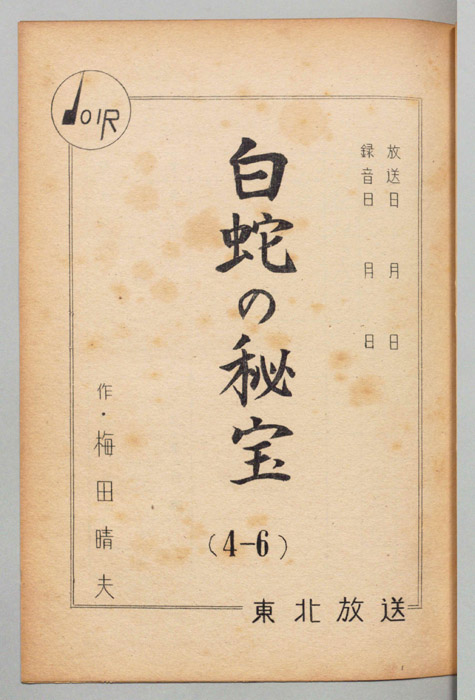 JOIR
放送日 月 日
録音日 月 日
白蛇の秘宝
(4-6)
作・梅田晴夫
東北放送